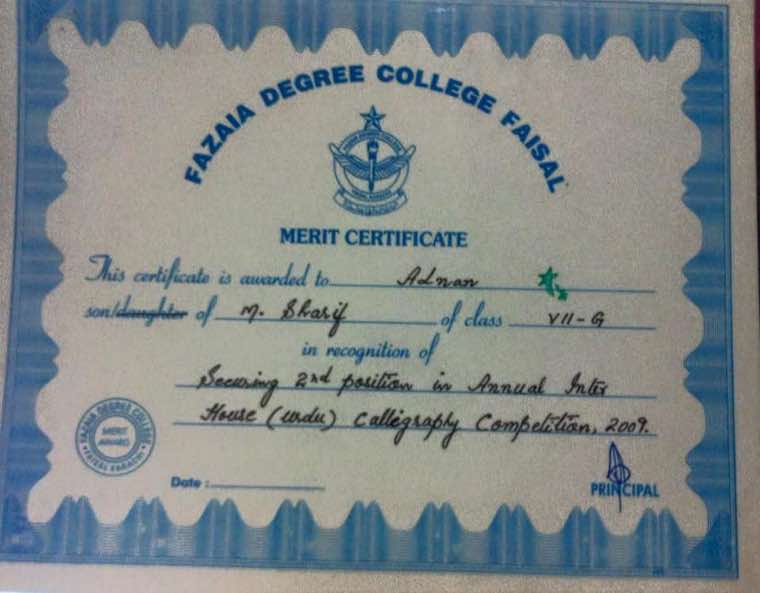 FAZAIA DEGREE COLLEGE FAISAL
MERIT CERTIFICATE
This certificate is awarded to Adnan
son/daughter of M. Sharif of class VII-G
in recognition of
Securing 2nd position in Annual Inter
House (urdu) Calligraphy Competition, 2009.
FAZAIA DEGREE COLLEGE
MERIT
AWARDS
FAISAL KARACHI
Date :
PRINCIPAL